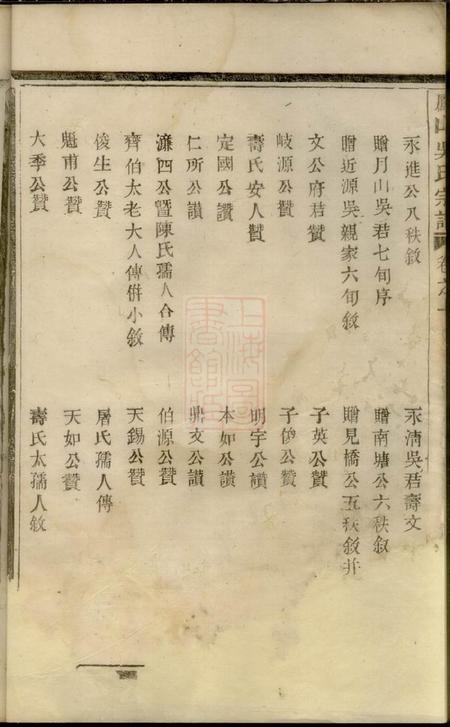 山吳氏宗譜 卷之一
永進公八秩敘 永淸吳君壽文
贈月山吳君七旬序 贈南塘公六秩敘
贈近源吳親家六旬敘 贈見橋公五秩敘并
文公府君贊 子英公贊
岐源公贊 子俊公贊
壽氏安人贊 明宇公讚
定國公讚 本如公讚
仁所公讚 鼎支公讚
濂四公曁陳氏孺人合傳 伯源公贊
齊伯太老大人傳倂小敘 天錫公贊
俊生公贊 屠氏孺人傳
魁甫公贊 天如公贊
大季公贊 壽氏太孺人敘
上海圖書館藏